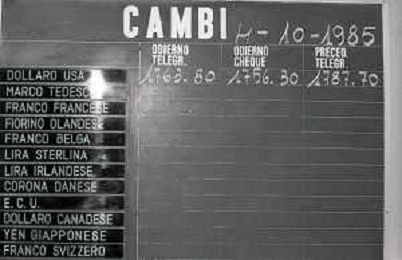 CAMBI 4-10-1985
ODIERNO TELEGR. ODIERNO CHEQUE PRECED. TELEGR.
DOLLARO USA 1763.80 1756.30 1787.70
MARCO TEDESCO
FRANCO FRANCESE
FIORINO OLANDESE
FRANCO BELGA
LIRA STERLINA
LIRA IRLANDESE
CORONA DANESE
E.C.U.
DOLLARO CANADESE
YEN GIAPPONESE
FRANCO SVIZZERO